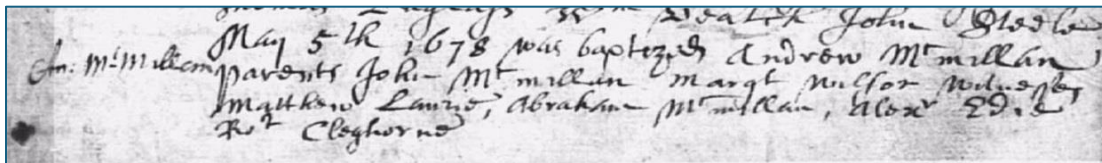 John Steele
An: McMillan
May 5th 1678 was baptized Andrew Mcmillan
parents John Mcmillan Margt Wilson Witnesses
Matthew Laurie, Abraham Mcmillan, Alexr Edie
Rot Cleghorne